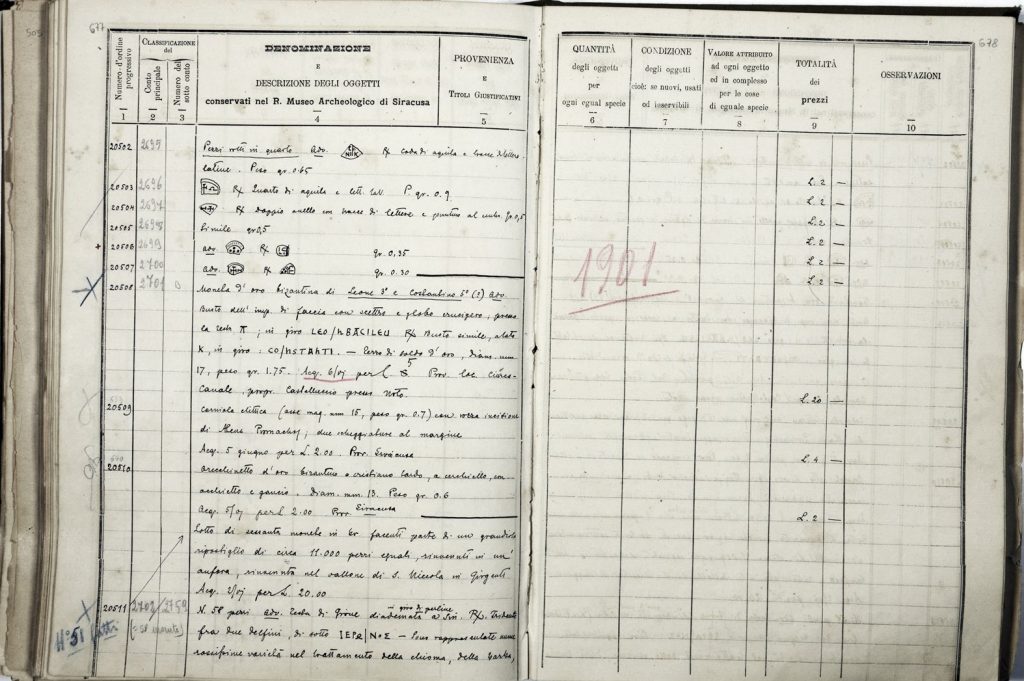 505
677
Numero d'ordine progressivo
CLASSIFICAZIONE
del
Conto principale
Numero del sotto conto
DENOMINAZIONE
E
DESCRIZIONE DEGLI OGGETTI
conservati nel R. Museo Archeologico di Siracusa
PROVENIENZA
E
TITOLI GIUSTIFICATIVI
1 2 3 4 5
20502 2695 Pezzi rotti in quarto adv.
R/ coda di aquila e tracce di lettere
latine. Peso gr. 0.45
20503 2696 R/ Quarto di aquila e lett. lat. P. gr. 0.9
20504 2697 R/ doppio anello con tracce di lettere e puntino al centro. Gr. 0,5
20505 2698 Simile gr 0,5
20506 2699 adv. R/ gr. 0.35
20507 2700 adv. R/ gr. 0.30
20508 2701 0 Moneta d'oro bizantina di Leone 3° e Costantino 5° (?) adv.
Busto dell'imp. di faccia con scettro e globo crucigero, presso
la testa π; in giro LEO/NBACILEU R/ Busto simile, a lato
K, in giro: CO/NSTANTI. — Terzo di soldo d'oro, diam. mm
17, peso gr. 1.75. Acq. 6/01 per L 5 Prov. loc.
Canale, propr. Castelluccio presso Noto.
20509 Corniola ellittica (asse mag. mm 15, peso gr. 0.7) con rozza incisione
di Atena Promachos; due scheggiature al margine
Acq. 5 giugno per L. 2.00. Prov. Siracusa
20510 orecchinetto d'oro bizantino o cristiano tardo, a cerchiello, con
occhietto e gancio. Diam. mm. 13. Peso gr. 0.6
Acq. 5/01 per L 2.00 Prov. Siracusa
Lotto di sessanta monete in br facenti parte di un grandioso
ripostiglio di circa 11.000 pezzi eguali, rinvenuti in un'
anfora, rinvenuta nel vallone di S. Niccola in Girgenti
Acq. 2/01 per L. 20.00
20511 2702/2759 N. 58 pezzi adv. Testa di Gerone diademata a sin. R/. Tridente
in giro di perline
N° 51
fra due delfini, di sotto ΙΕΡΩ|ΝΟΣ — Sono rappresentate numerosissime varietà nel trattamento della chioma, della barba,
678
QUANTITÀ
degli oggetti
per
ogni egual specie
CONDIZIONE
degli oggetti
cioè: se nuovi, usati
od inservibili
VALORE ATTRIBUITO
ad ogni oggetto
od in complesso
per le cose
di eguale specie
TOTALITÀ
dei
prezzi
OSSERVAZIONI
6 7 8 9 10
L. 2 —
L. 2 —
L. 2 —
L. 2 —
L. 2 —
L. 2 —
1901
L. 20 —
L. 4 —
L. 2 —